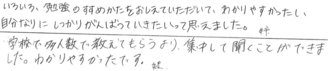 いろいろ、勉強の対めかたをおしえていただいて、わかりやすかったし、
自分なりにしっかりがんばっていきたいって思えました。
学校で多人数で教えてもらうより、集中して聞くことができま
した。わかりやすかったです。